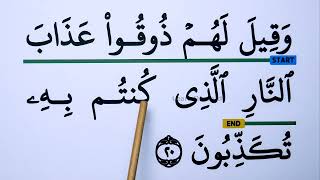 وَقِيلَ لَهُمۡ ذُوقُواْ عَذَابَ
START
ٱلنَّارِ ٱلَّذِى كُنتُم بِهِۦ
END
تُكَذِّبُونَ ٢٠